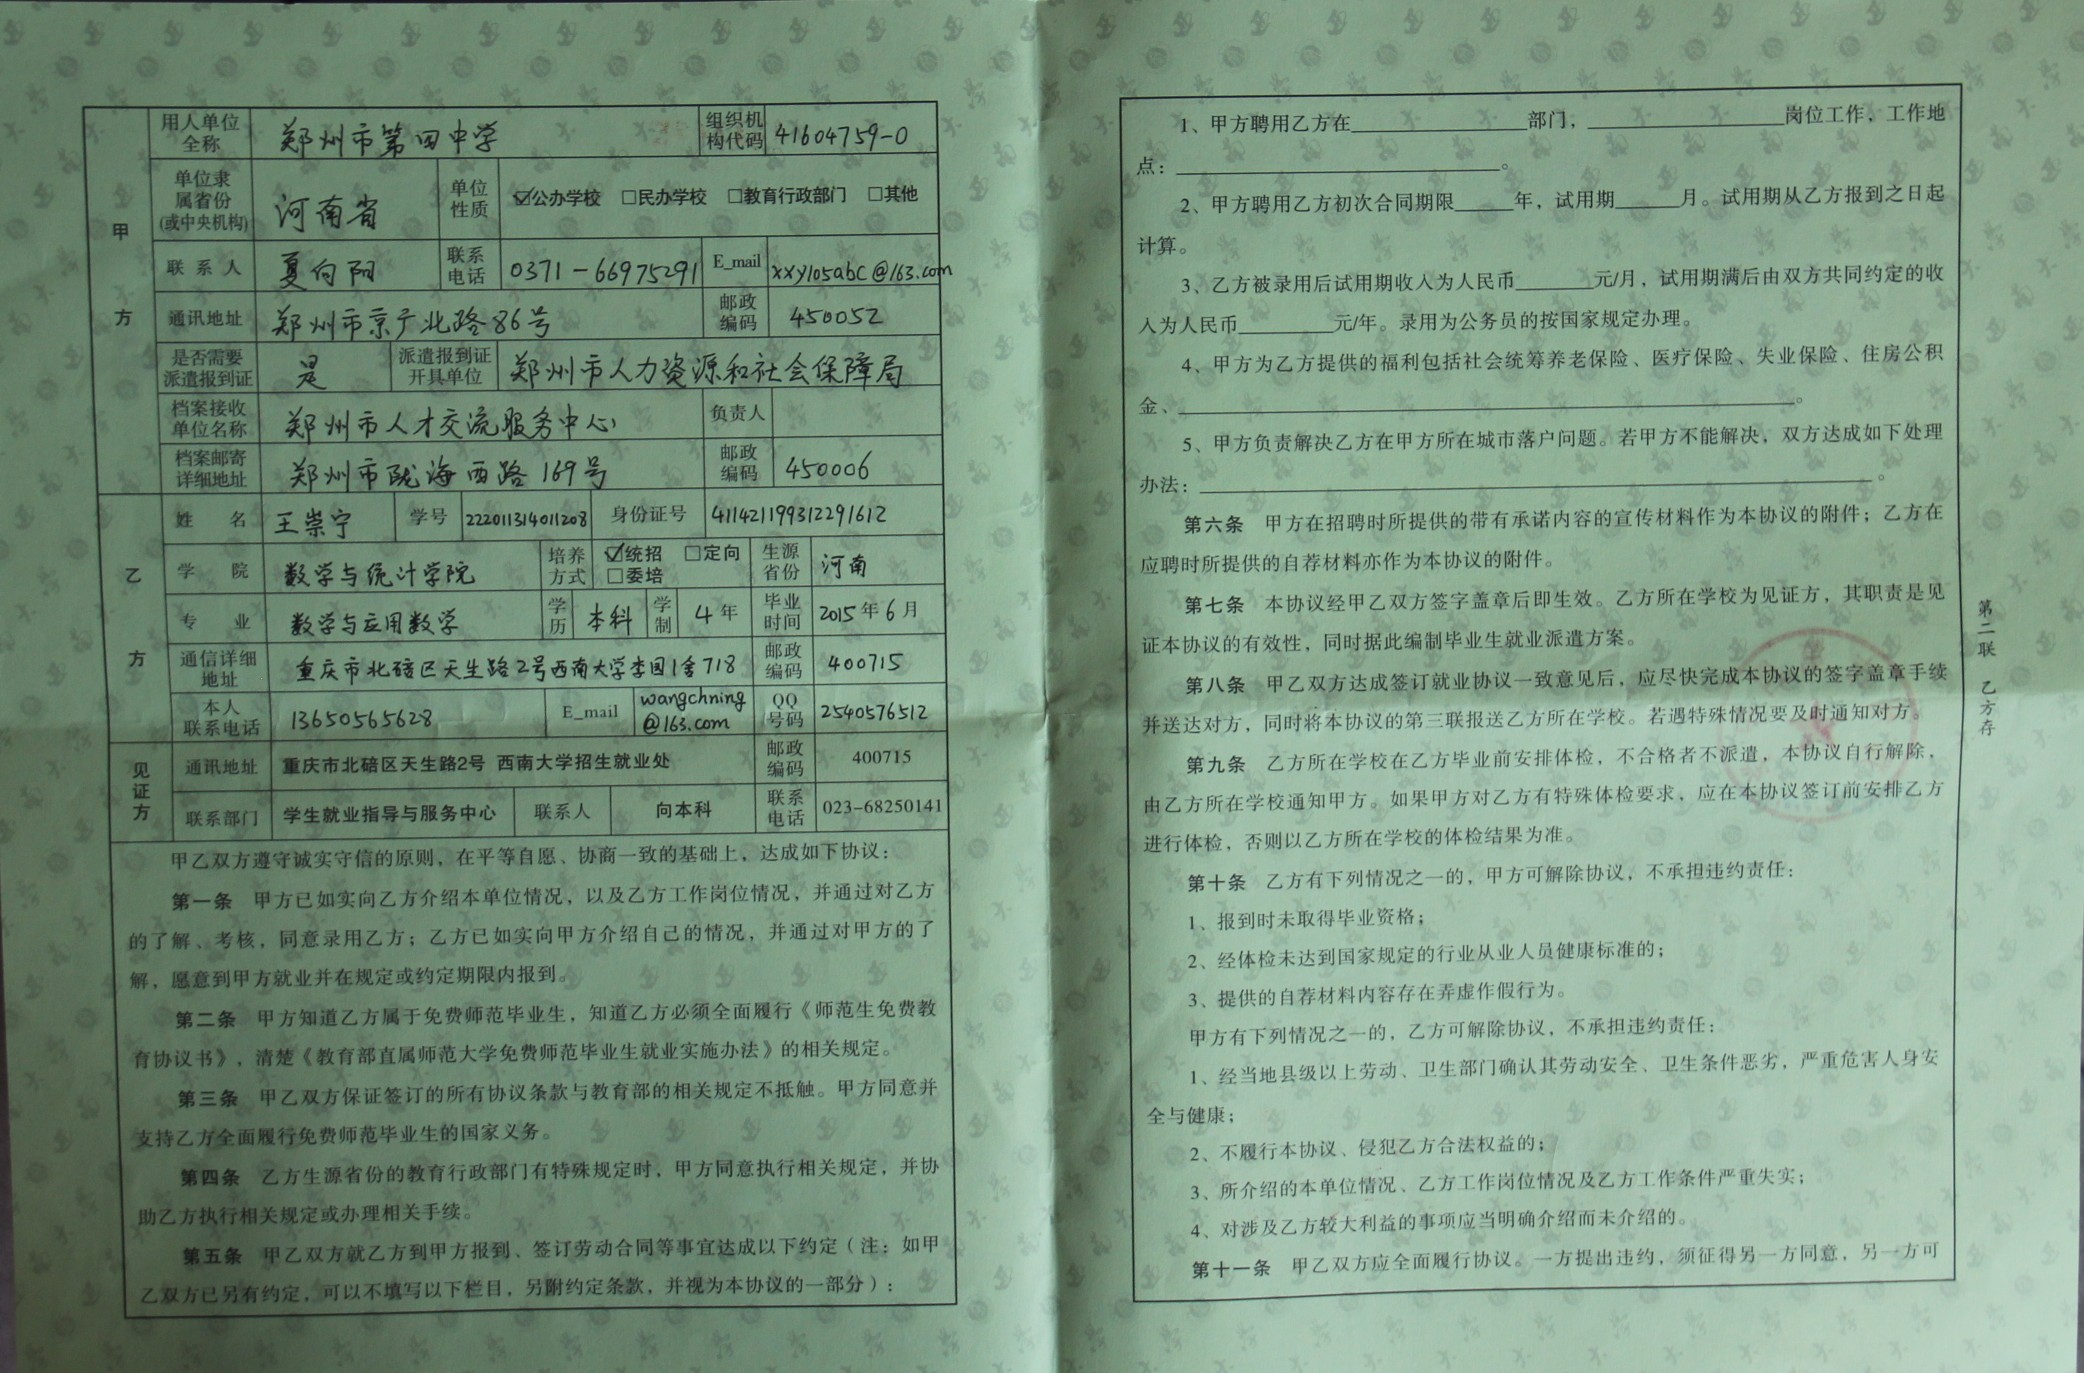 甲方
用人单位全称 郑州市第四中学 组织机构代码 41604759-0
单位隶属省份(或中央机构) 河南省 单位性质 ☑公办学校 □民办学校 □教育行政部门 □其他
联系人 夏向阳 联系电话 0371-66975291 E_mail xxy105abc@163.com
通讯地址 郑州市京广北路86号 邮政编码 450052
是否需要派遣报到证 是 派遣报到证开具单位 郑州市人力资源和社会保障局
档案接收单位名称 郑州市人才交流服务中心 负责人
档案邮寄详细地址 郑州市陇海西路169号 邮政编码 450006
乙方
姓 名 王崇宁 学号 222011314011208 身份证号 411421199312291612
学 院 数学与统计学院 培养方式 ☑统招 □定向 □委培 生源省份 河南
专 业 数学与应用数学 学历 本科 学制 4年 毕业时间 2015年6月
通信详细地址 重庆市北碚区天生路2号西南大学李园1舍718 邮政编码 400715
本人联系电话 13650565628 E_mail wangchning@163.com QQ号码 2540576512
见证方
通讯地址 重庆市北碚区天生路2号 西南大学招生就业处 邮政编码 400715
联系部门 学生就业指导与服务中心 联系人 向本科 联系电话 023-68250141
甲乙双方遵守诚实守信的原则，在平等自愿、协商一致的基础上，达成如下协议：
第一条 甲方已如实向乙方介绍本单位情况，以及乙方工作岗位情况，并通过对乙方
的了解、考核，同意录用乙方；乙方已如实向甲方介绍自己的情况，并通过对甲方的了
解，愿意到甲方就业并在规定或约定期限内报到。
第二条 甲方知道乙方属于免费师范毕业生，知道乙方必须全面履行《师范生免费教
育协议书》，清楚《教育部直属师范大学免费师范毕业生就业实施办法》的相关规定。
第三条 甲乙双方保证签订的所有协议条款与教育部的相关规定不抵触。甲方同意并
支持乙方全面履行免费师范毕业生的国家义务。
第四条 乙方生源省份的教育行政部门有特殊规定时，甲方同意执行相关规定，并协
助乙方执行相关规定或办理相关手续。
第五条 甲乙双方就乙方到甲方报到、签订劳动合同等事宜达成以下约定（注：如甲
乙双方已另有约定，可以不填写以下栏目，另附约定条款，并视为本协议的一部分）：
1、甲方聘用乙方在______部门，______岗位工作，工作地
点：______。
2、甲方聘用乙方初次合同期限____年，试用期____月。试用期从乙方报到之日起
计算。
3、乙方被录用后试用期收入为人民币____元/月，试用期满后由双方共同约定的收
入为人民币____元/年。录用为公务员的按国家规定办理。
4、甲方为乙方提供的福利包括社会统筹养老保险、医疗保险、失业保险、住房公积
金、______。
5、甲方负责解决乙方在甲方所在城市落户问题。若甲方不能解决，双方达成如下处理
办法：______。
第六条 甲方在招聘时所提供的带有承诺内容的宣传材料作为本协议的附件；乙方在
应聘时所提供的自荐材料亦作为本协议的附件。
第七条 本协议经甲乙双方签字盖章后即生效。乙方所在学校为见证方，其职责是见
证本协议的有效性，同时据此编制毕业生就业派遣方案。
第八条 甲乙双方达成签订就业协议一致意见后，应尽快完成本协议的签字盖章手续
并送达对方，同时将本协议的第三联报送乙方所在学校。若遇特殊情况要及时通知对方。
第九条 乙方所在学校在乙方毕业前安排体检，不合格者不派遣，本协议自行解除，
由乙方所在学校通知甲方。如果甲方对乙方有特殊体检要求，应在本协议签订前安排乙方
进行体检，否则以乙方所在学校的体检结果为准。
第十条 乙方有下列情况之一的，甲方可解除协议，不承担违约责任：
1、报到时未取得毕业资格；
2、经体检未达到国家规定的行业从业人员健康标准的；
3、提供的自荐材料内容存在弄虚作假行为。
甲方有下列情况之一的，乙方可解除协议，不承担违约责任：
1、经当地县级以上劳动、卫生部门确认其劳动安全、卫生条件恶劣，严重危害人身安
全与健康；
2、不履行本协议、侵犯乙方合法权益的；
3、所介绍的本单位情况、乙方工作岗位情况及乙方工作条件严重失实；
4、对涉及乙方较大利益的事项应当明确介绍而未介绍的。
第十一条 甲乙双方应全面履行协议。一方提出违约，须征得另一方同意，另一方可
第二联 乙方存